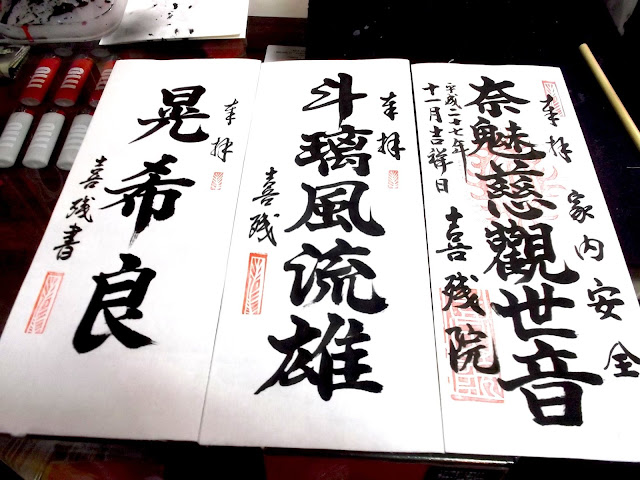 奉拝
家内安全
奈魅慈観世音
平成二十七年
十一月吉祥日
喜残院
奉拝
斗璃風流雄
喜残
奉拝
晃希良
喜残書